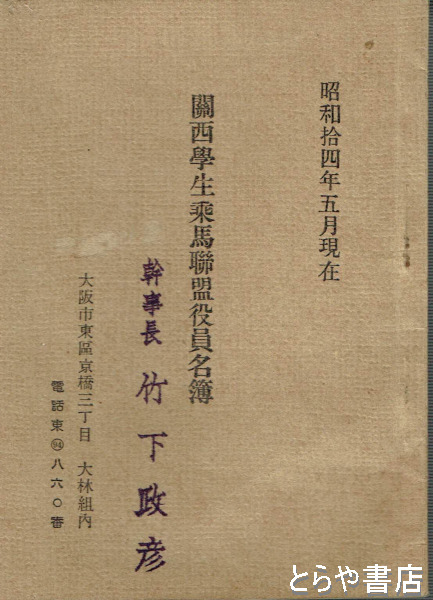 昭和拾四年五月現在
關西學生乘馬聯盟役員名簿
幹事長 竹下政彦
大阪市東區京橋三丁目 大林組内
電話東㊾八六〇番
とらや書店